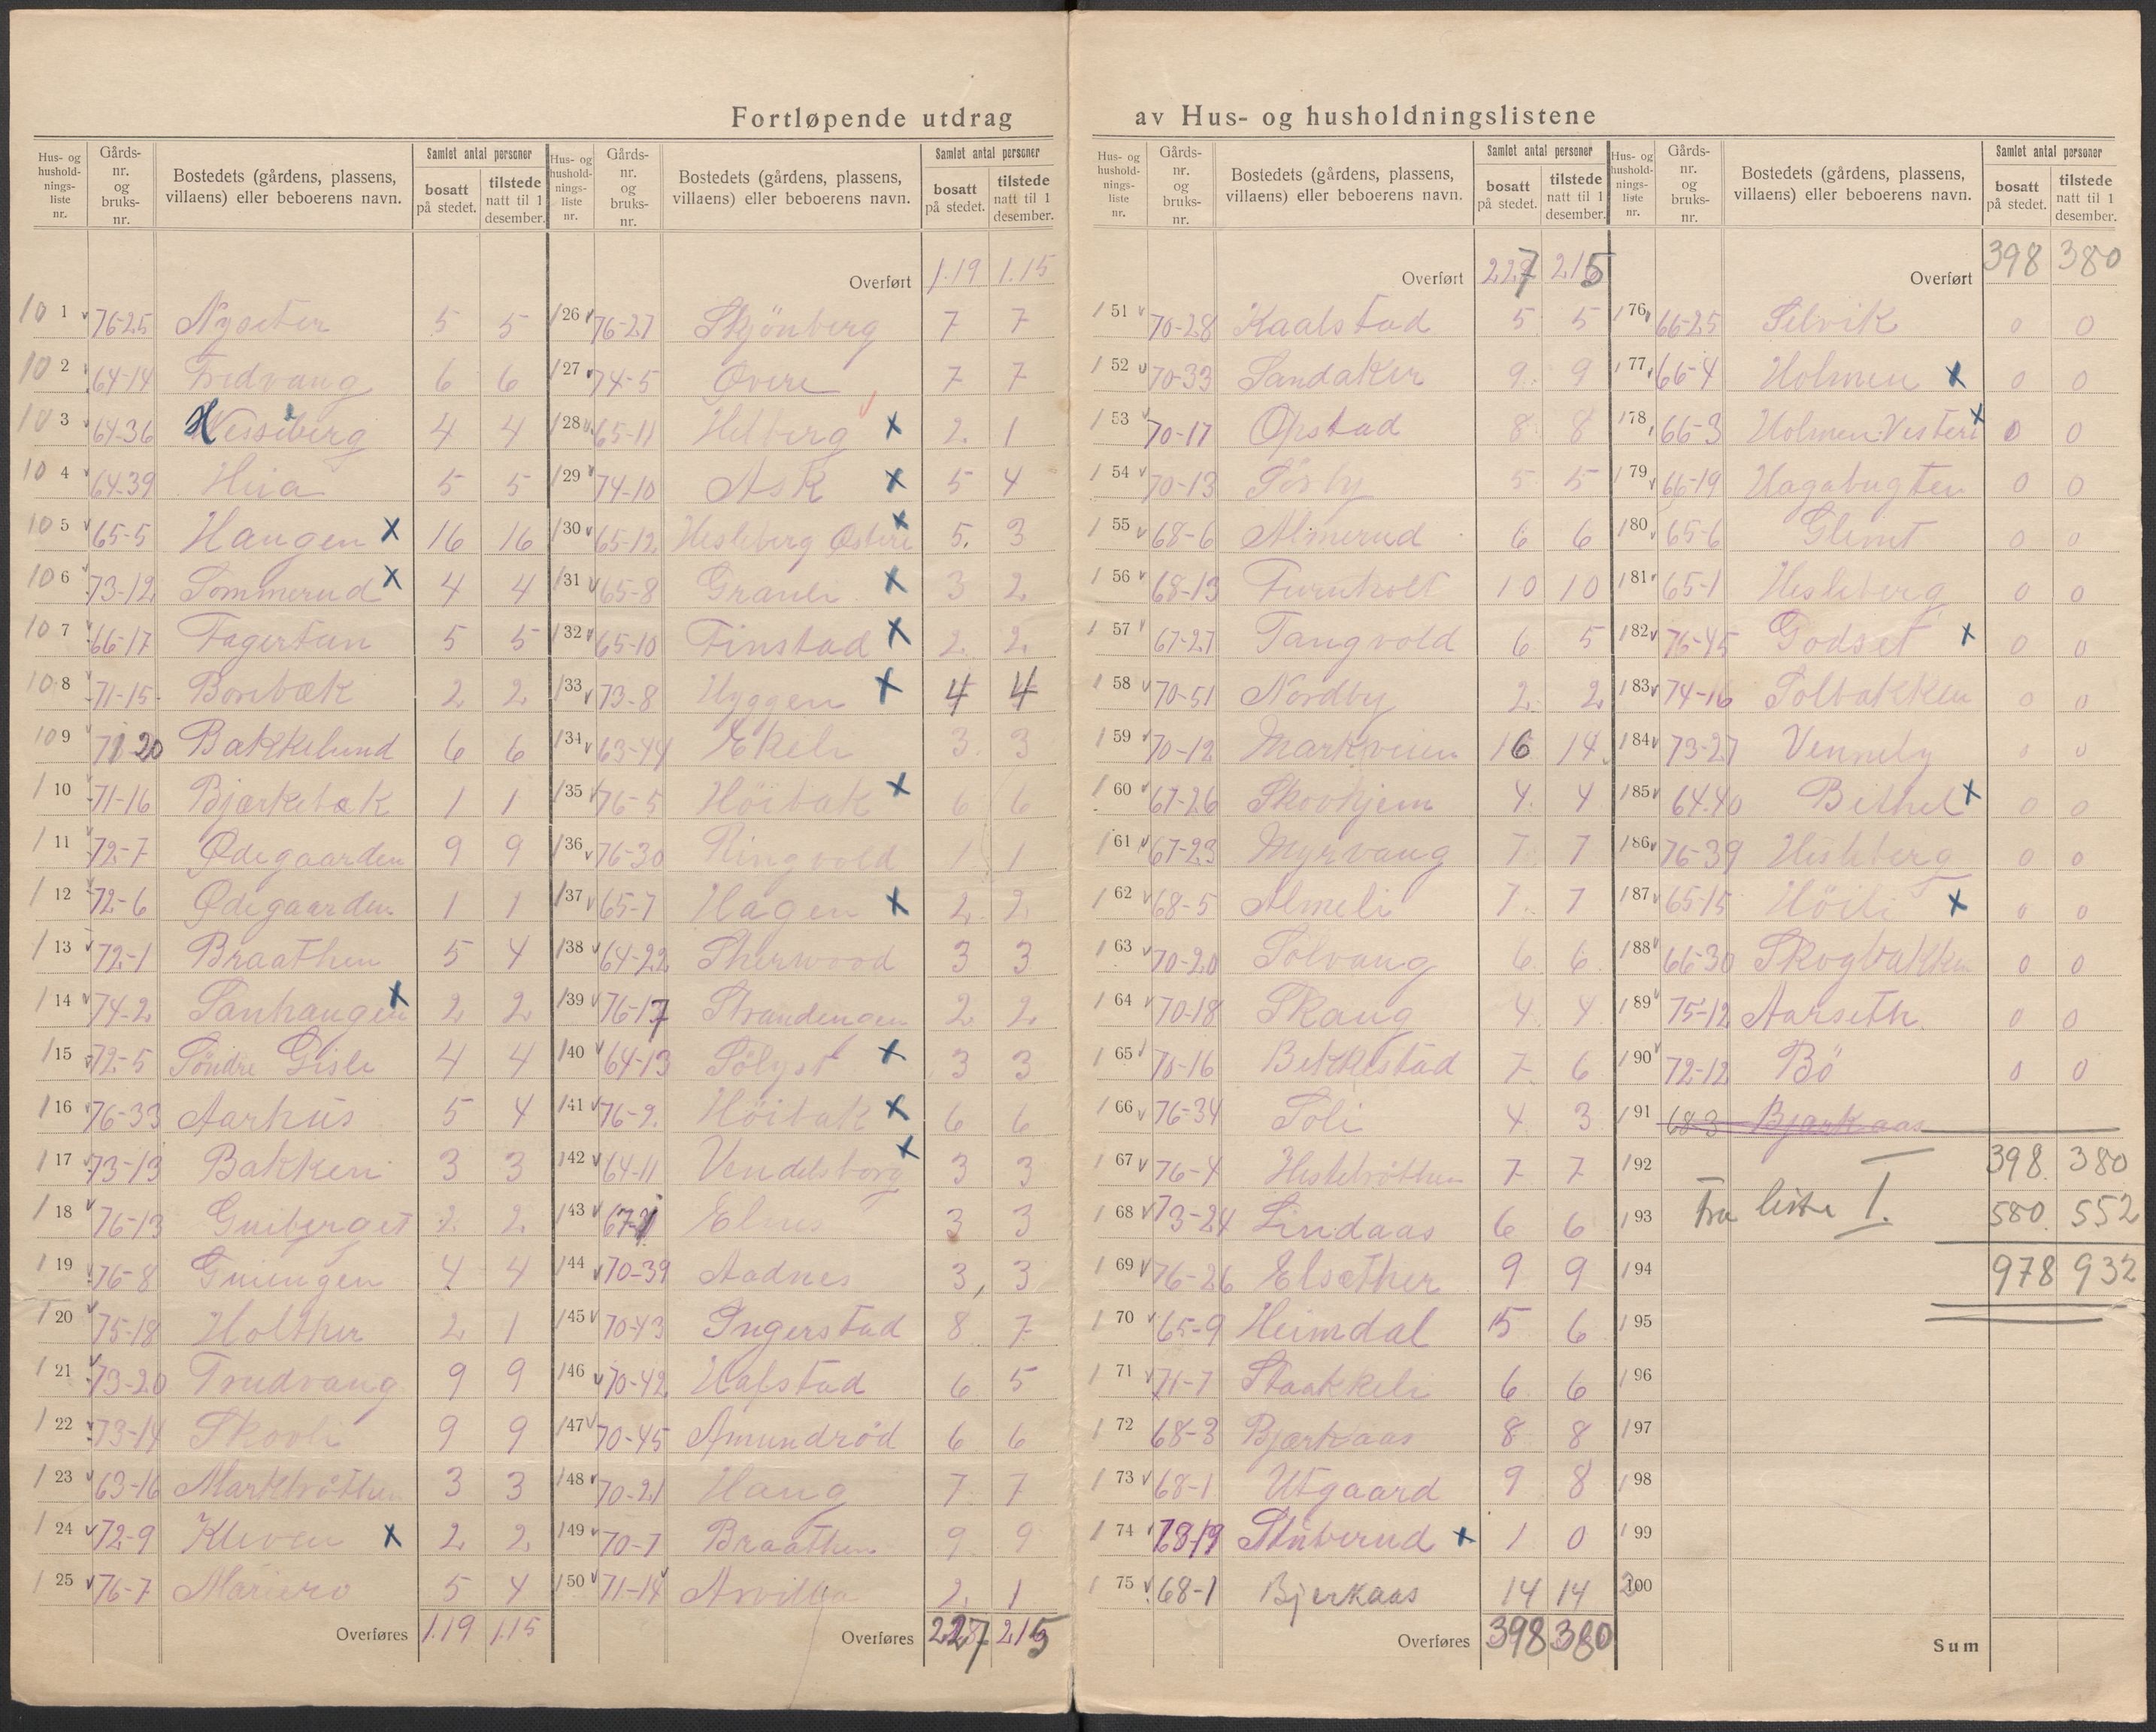 Fortløpende utdrag av Hus- og husholdningslistene
Hus- og husholdnings- liste nr. | Gårds- nr. og bruks- nr. | Bostedets (gårdens, plassens, villaens) eller beboerens navn. | Samlet antal personer | bosatt på stedet. | tilstede natt til 1 desember.
10 1 76-25 Nyseter 5 5
10 2 64-14 Fredvang 6 6
10 3 64-36 4 4
10 4 64-39 Heia 5 5
10 5 65-5 Haugen X 16 16
10 6 73-12 Sommerud X 4 4
10 7 66-17 Fagertun 5 5
10 8 71-15 Bonbæk 2 2
10 9 71-20 Bakkelund 6 6
1 10 71-16 Bjærkebæk 1 1
1 11 72-7 Ødegaarden 9 9
1 12 72-6 Ødegaarden 1 1
1 13 72-1 Braathen 5 4
1 14 74-2 Sanhaugen X 2 2
1 15 72-5 Søndre Gisle 4 4
1 16 76-33 Aarhus 5 4
1 17 73-13 Bakken 3 3
1 18 76-13 Gueberget 2 2
1 19 76-8 Guiengen 4 4
1 20 75-18 Holther 2 1
1 21 73-20 Trudvang 9 9
1 22 73-14 Skovli 9 9
1 23 63-16 Markbråthen 3 3
1 24 72-9 Kleven X 2 2
1 25 76-7 Mariero 5 4
Overføres 1.19 1.15
Overført 1.19 1.15
1 26 76-27 Skjönberg 7 7
1 27 74-5 Øvere 7 7
1 28 65-11 Helberg X 2 1
1 29 74-10 Ask X 5 4
1 30 65-12 Hesleberg Østere X 5 3
1 31 65-8 Granli X 3 2
1 32 65-10 Finstad X 2 2
1 33 73-8 Hyggen X 4 4
1 34 63-44 Ekeli 3 3
1 35 76-5 Höibak X 6 6
1 36 76-30 Ringvold 1 1
1 37 65-7 Hagen X 2 2
1 38 64-22 Sherwood 3 3
1 39 76-17 Strandengen 2 2
1 40 64-13 Sölyst X 3 3
1 41 76-2 Höibak X 6 6
1 42 64-11 Vendelsborg X 3 3
1 43 Elnes 3 3
1 44 70-39 Aadnes 3 3
1 45 70-43 Ingerstad 8 7
1 46 70-42 Hafstad 6 5
1 47 70-45 Amundröd 6 6
1 48 70-21 Haug 7 7
1 49 70-7 Braathen 9 9
1 50 71-14 Arvilla 2 1
Overføres 227 215
Overført 227 215
1 51 70-28 Kaalstad 5 5
1 52 70-33 Sandaker 9 9
1 53 70-17 Opstad 8 8
1 54 70-13 Sörby 5 5
1 55 68-6 Almerud 6 6
1 56 68-13 Furuholt 10 10
1 57 67-27 Tangvold 6 5
1 58 70-51 Nordby 2 2
1 59 70-12 Markveien 16 14
1 60 67-26 Skovhjem 4 4
1 61 67-23 Myrvang 7 7
1 62 68-5 Almeli 7 7
1 63 70-20 Solvang 6 6
1 64 70-18 Skaug 4 4
1 65 70-16 Bekkestad 7 6
1 66 76-34 Soli 4 3
1 67 76-4 Heslebråthen 7 7
1 68 73-24 Lindaas 6 6
1 69 76-26 Elsæther 9 9
1 70 65-9 Heimdal 5 6
1 71 71-7 Staakkeli 6 6
1 72 68-3 Bjærkaas 8 8
1 73 68-1 Utgaard 9 8
1 74 Stuberud X 1 0
1 75 68-1 Bjerkaas 14 14
Overføres 398 380
Overført 398 380
1 76 66-25 Selvik 0 0
1 77 66-4 Holmen X 0 0
1 78 66-3 Holmen Vestere X 0 0
1 79 66-19 Hagabugten 0 0
1 80 65-6 Glimt 0 0
1 81 65-1 Hesleberg 0 0
1 82 76-45 Godset X 0 0
1 83 74-16 Solbakken 0 0
1 84 73-27 Vennely 0 0
1 85 64-40 Bethel X 0 0
1 86 76-39 Hesleberg 0 0
1 87 65-15 Höili X 0 0
1 88 66-30 Skogbakken 0 0
1 89 75-12 Aarseth 0 0
1 90 72-12 Bö 0 0
1 91 68-3 Bjærkaas
1 92 398 380
1 93 Fra liste I. 580 552
1 94 978 932
1 95
1 96
1 97
1 98
1 99
200
Sum